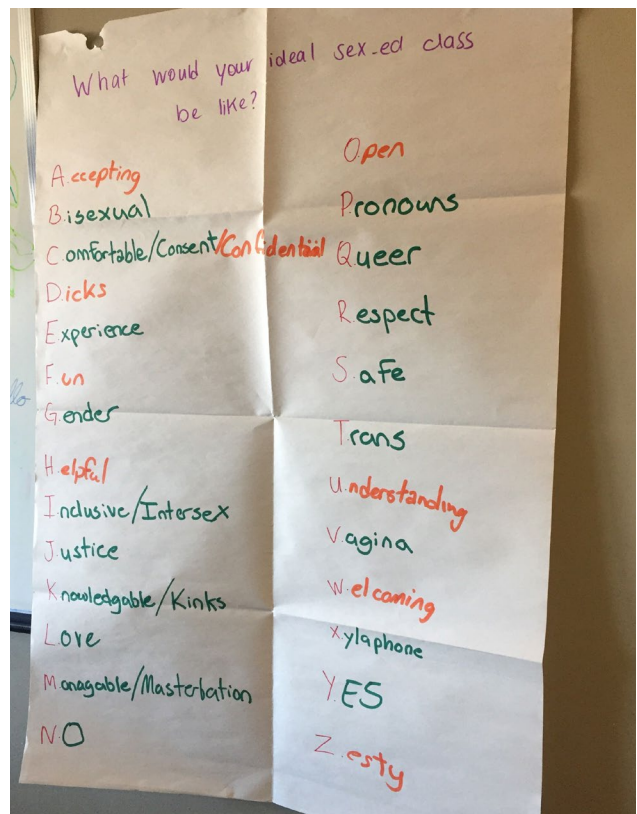 What would your ideal sex-ed class
be like?
A.ccepting
B.isexual
C.omfortable/Consent/Confidential
D.icks
E.xperience
F.un
G.ender
H.elpful
I.nclusive/Intersex
J.ustice
K.nowledgable/Kinks
L.ove
M.anagable/Masterbation
N.O
O.pen
P.ronouns
Q.ueer
R.espect
S.afe
T.rans
U.nderstanding
V.agina
W.elcoming
X.ylaphone
Y.ES
Z.esty